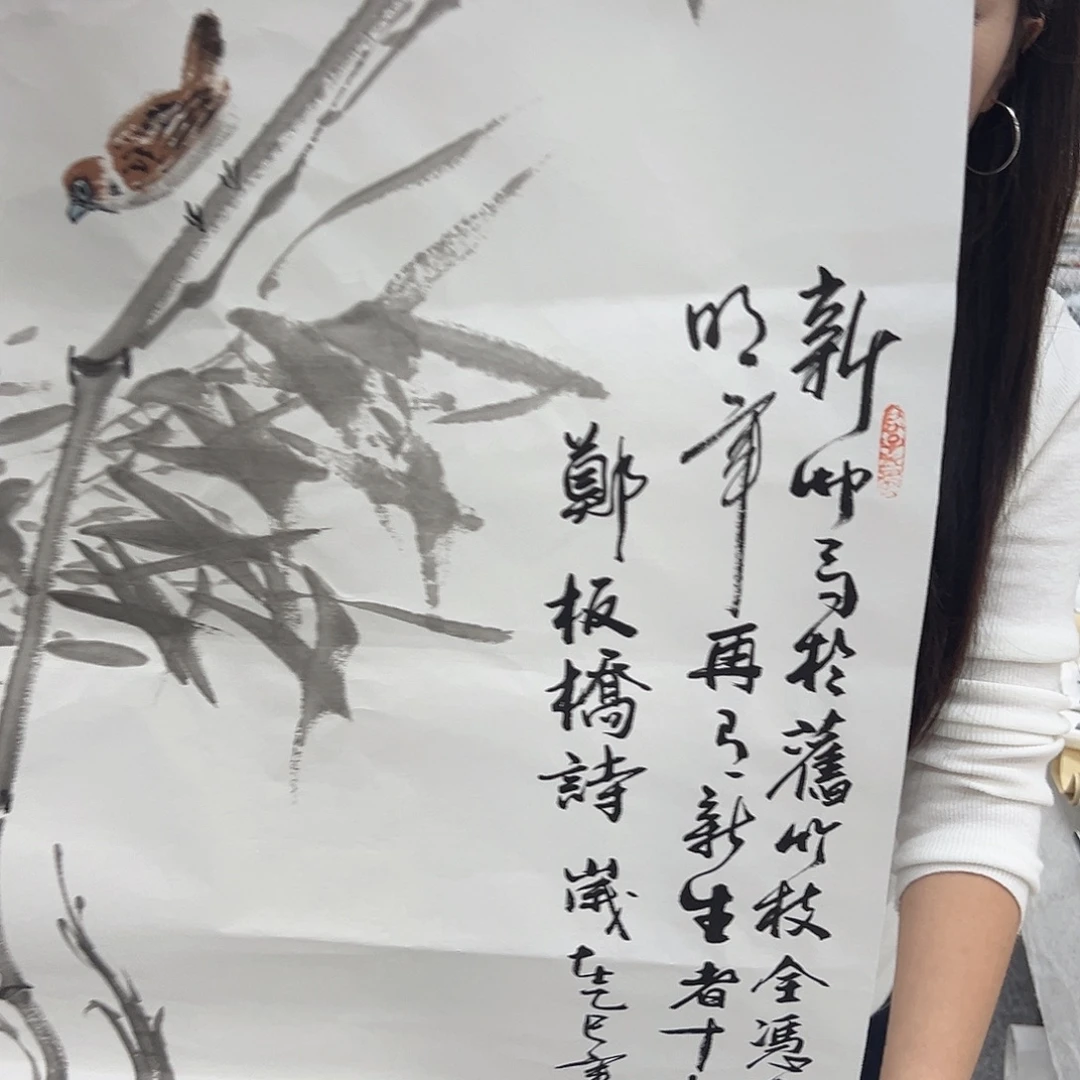 新竹高於舊竹枝全憑
明年再有新生者十
鄭板橋詩 歲在乙巳